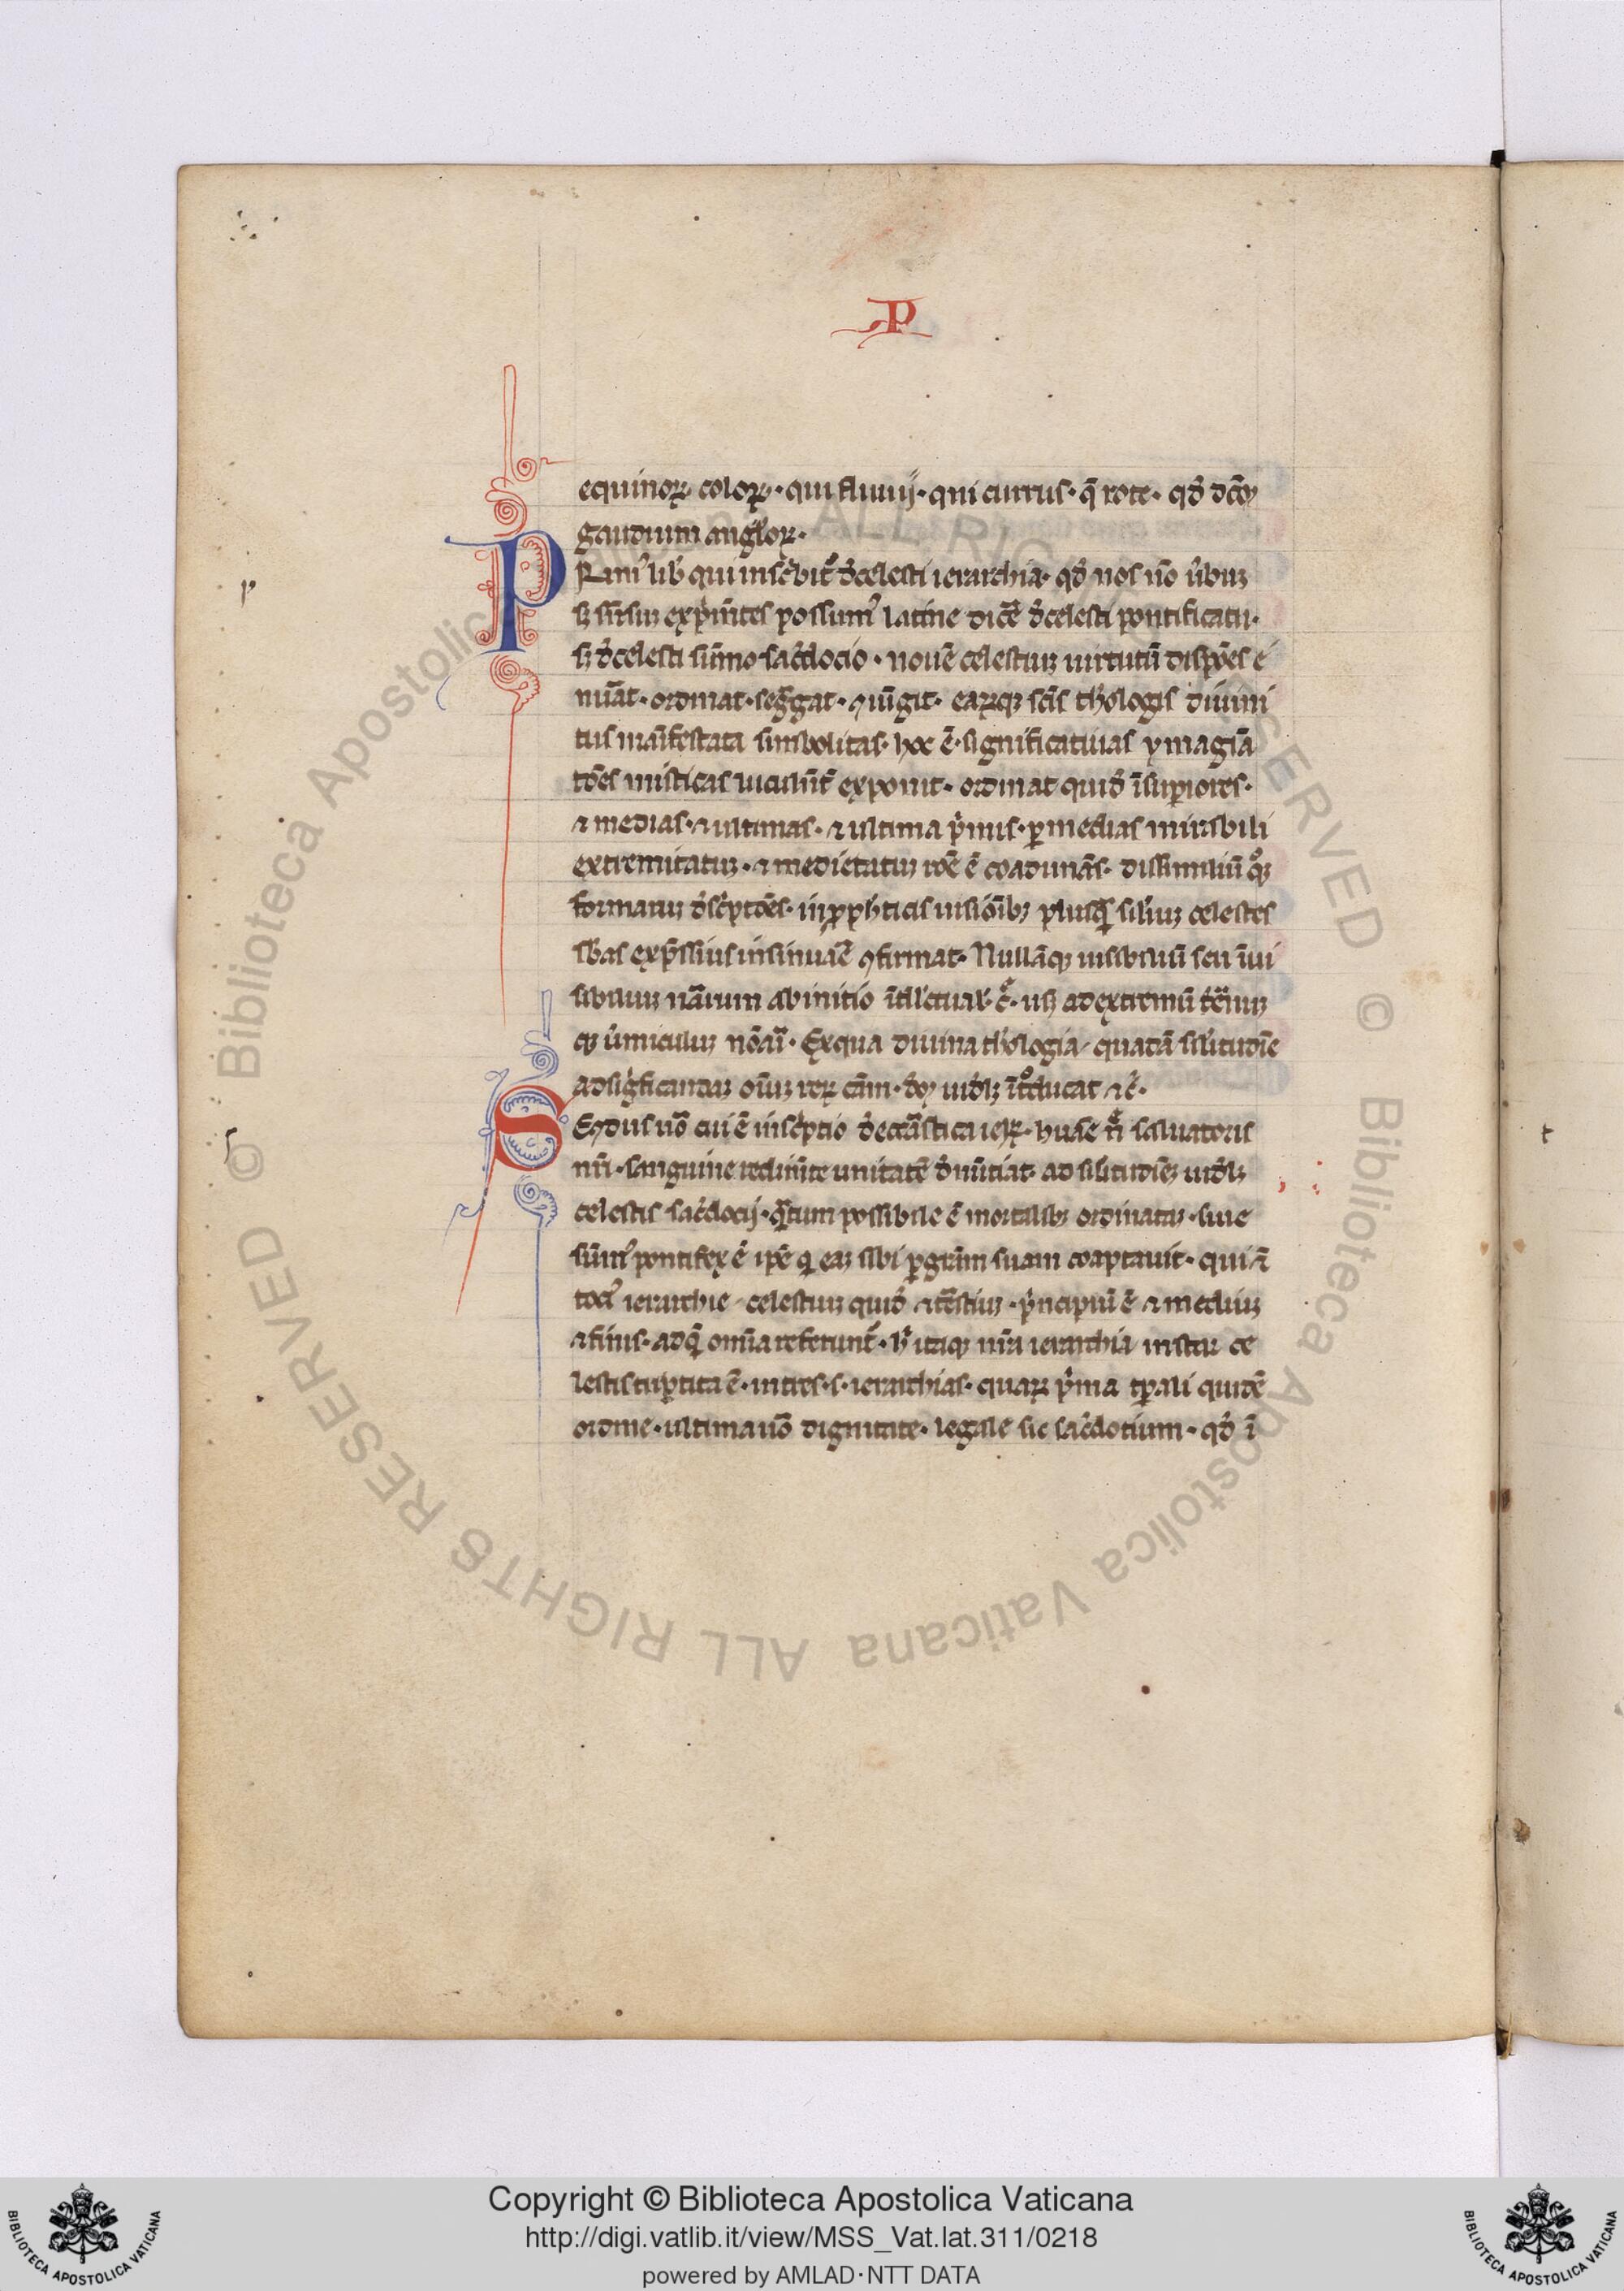 P
equinoꝝ coloꝝ · qui fluuij · qui currus · q̄ rote · qd̓ dc̄m
gaudium angl̓oꝝ ·
PRim᷒ lib̓ qui inscͥbit᷑ d̓ celesti ierarchia · qd̓ nos nō u̓bum
sensum exp̓mētes possum᷒ latine dice̓ d̓ celesti pontificatu ·
l̓ d̓ celesti sūmo sac̓docio · nouē celestium uirtutū
ordinat · seg̓gat · ꝯiūgit · earūqꝫ scīs theologis diuini
tus manifestata simbolicas · hoc ē · significatiuas ymagīa
tōes misticas exponit · ordinat quid̓ īsup̓iores ·
⁊ medias · ⁊ ultimas · ⁊ ultima p̓mis · ꝑ medias mirabili
extremitatum · ⁊ medietatum rōe coadunās · dissimiliū
formarum d̓scͥptōes · in ꝓph̓ticis uisiōibꝫ plusq̄ similium celestes
sb̓as exp̓ssius insinuare ꝯfirmat · Nullāqꝫ uisibiliū seu īui
sibilium nāturarum ab initio ītll̓ectual̓ · usqꝫ ad extremū
qꝫ u̓miculum nōat᷑ · Ex qua diuina theologia quadā sīlitudīe
ad sig̓ficandum oīum rerꝝ cām · ītͦducat ⁊ c̓ ·
SEcͦdus uō cui ē inscͥptio d̓ eccl̓iastica ierꝝ · salvatoris
nrī · sanguine redimēte unitatē d̓nūtiat · ad silitudīeꝫ
celestis sac̓docij · qͣtum possibile ē mortalibꝫ ordinatam · siue
sūm᷒ pontifex ē ip̄e qui eam sibi ꝑ grām suam coaptauit · qui ⁊
toci᷒ ierarchie celestium quid̓ ⁊ trēstium · pͥncipiū ē ⁊ medium
⁊ finis · ad q̄ omīa referunt᷑ · h̓ itaqꝫ nr̄a ierarchia instar ce
lestis tripͥtita ē · in tres · s · ierarchias · quarꝝ pͥma tp̄ali quidē
ordine · ultima uō dignitate · legale sic sac̓dotium · qd̓ ī
p
s
t
Copyright © Biblioteca Apostolica Vaticana
http://digi.vatlib.it/view/MSS_Vat.lat.311/0218
powered by AMLAD·NTT DATA
BIBLIOTECA APOSTOLICA VATICANA
BIBLIOTECA APOSTOLICA VATICANA